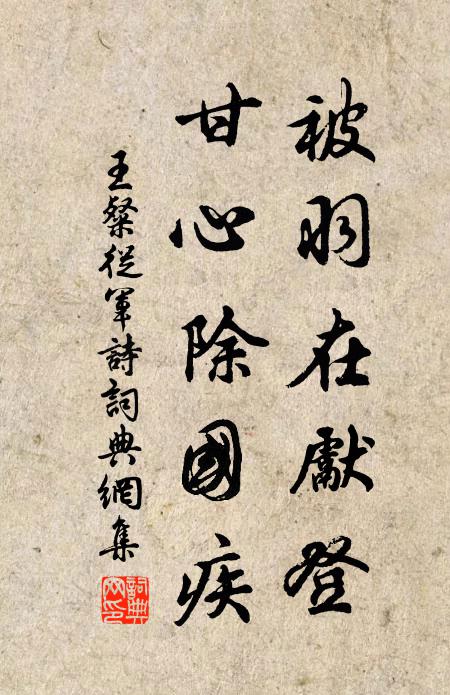 被羽在獻登
甘心除國疾
王粲從軍詩詞典網集
詞典